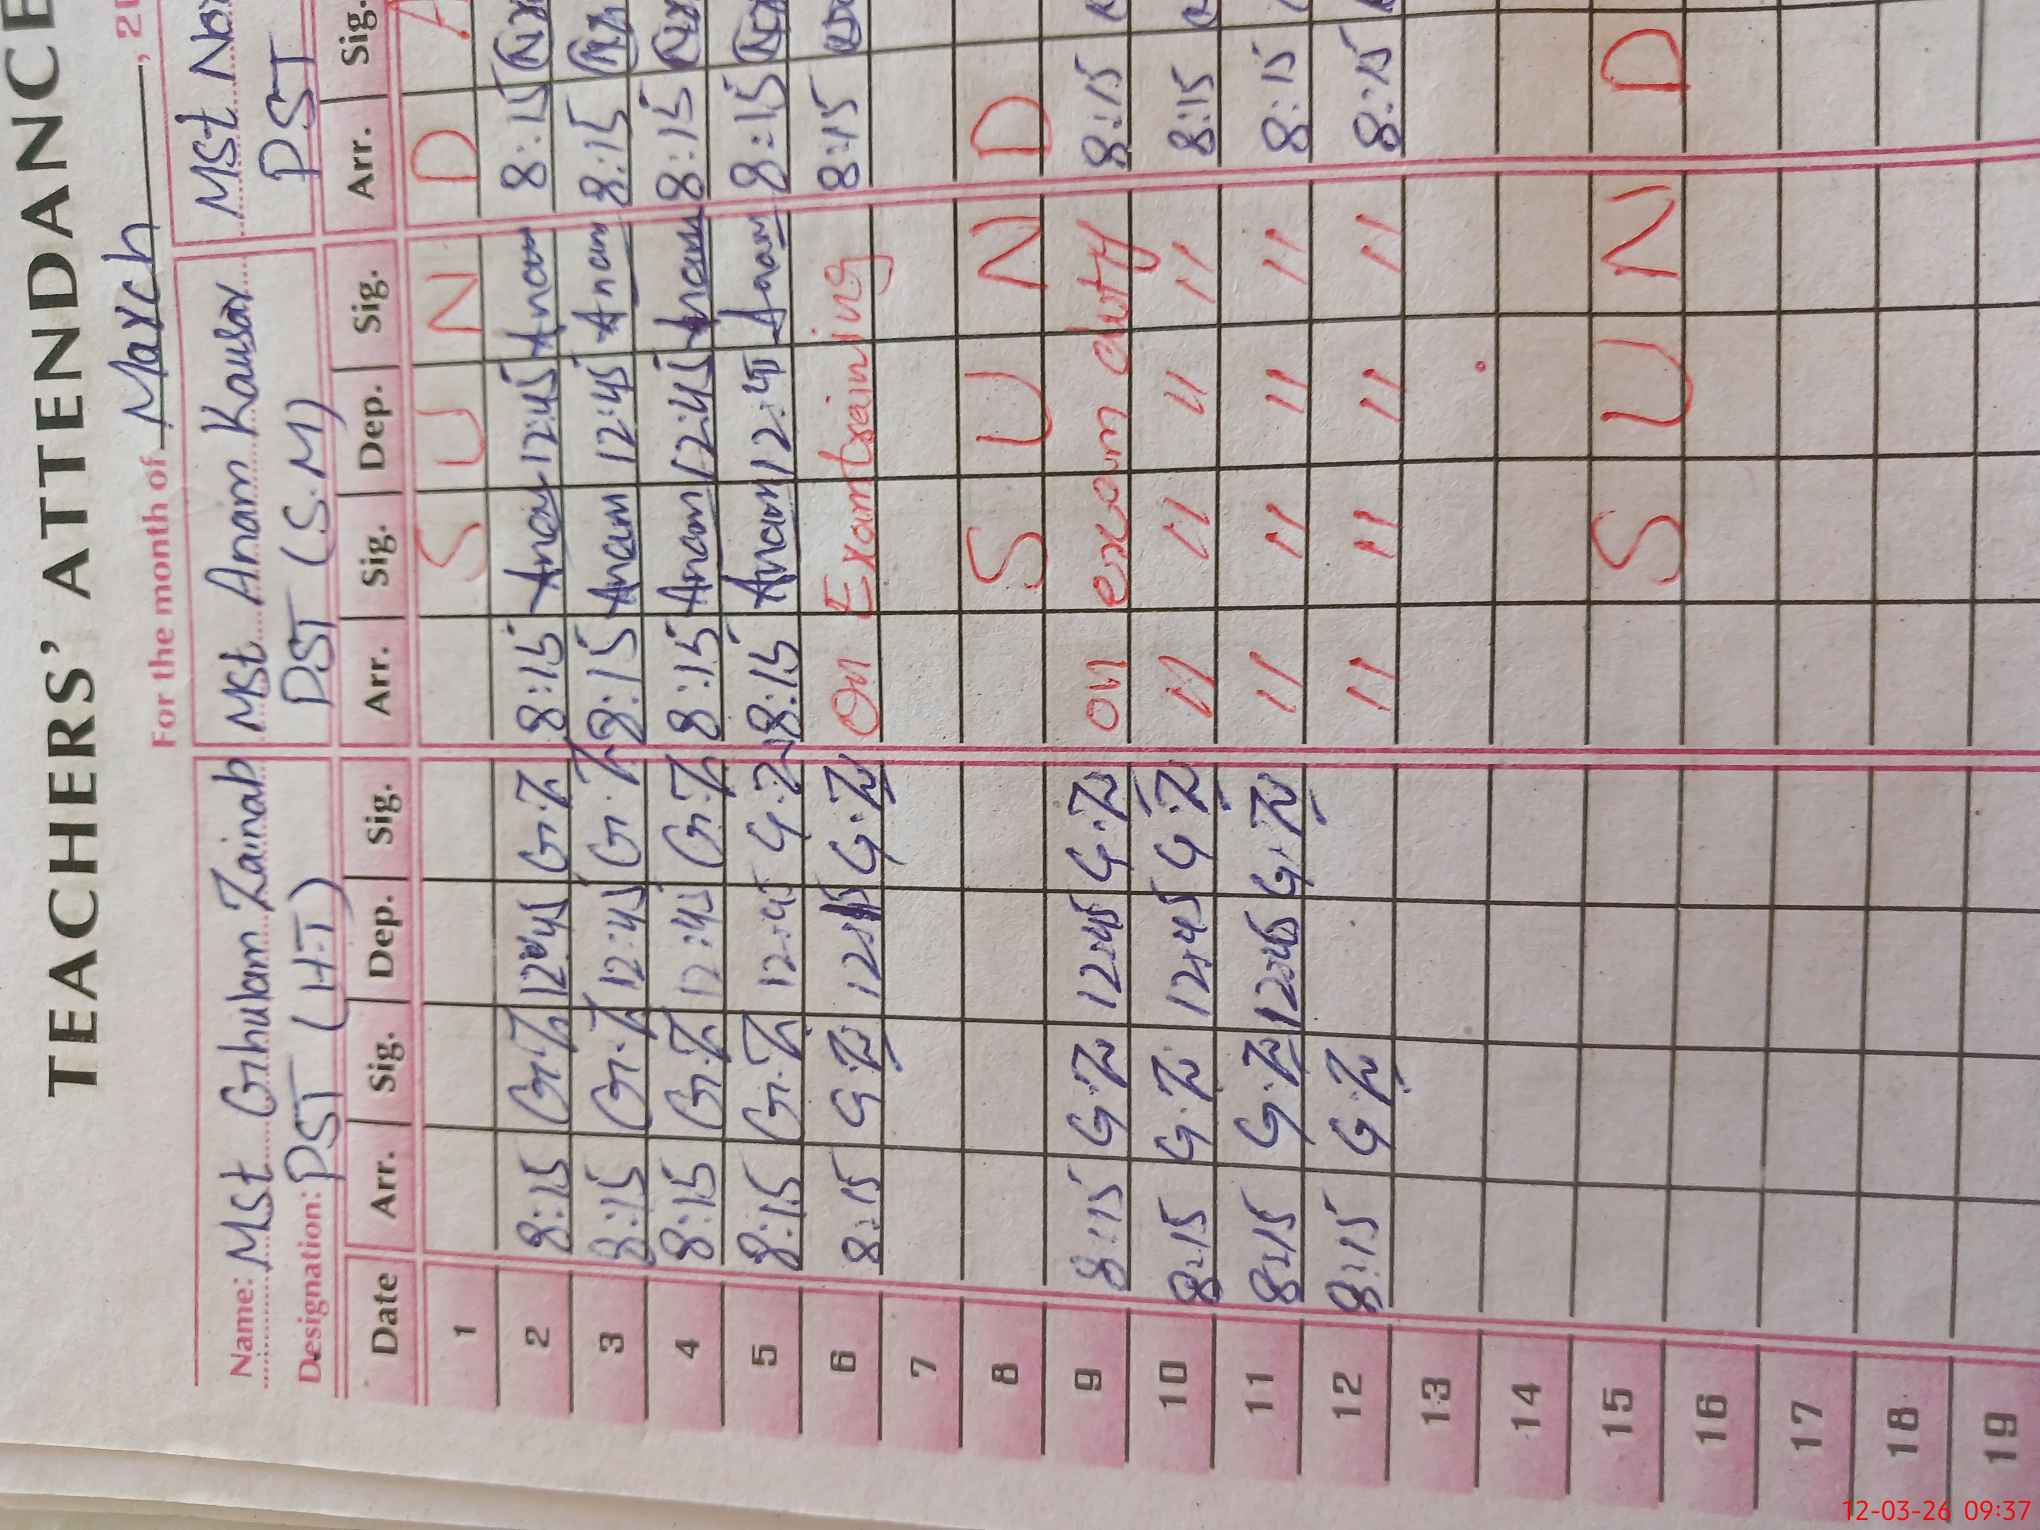 TEACHERS' ATTENDANCE
For the month of March
Name: Mst Ghulam Zainab Mst Anam Kausar Mst
Designation: PST (H.T) PST (S.M) PST
Date Arr. Sig. Dep. Sig. Arr. Sig. Dep. Sig. Arr. Sig.
1 S U N D A
2 8:15 G.Z 12:45 G.Z 8:15 Anam 12:45 Anam 8:15
3 8:15 G.Z 12:45 G.Z 8:15 Anam 12:45 Anam 8:15
4 8:15 G.Z 12:45 G.Z 8:15 Anam 12:45 Anam 8:15
5 8:15 G.Z 12:45 G.Z 8:15 Anam 12:45 Anam 8:15
6 8:15 G.Z G.Z On Exam training 8:15
7
8 S U N D
9 8:15 G.Z 12:45 G.Z on exam duty 8:15
10 8:15 G.Z 12:45 G.Z 11 11 11 11 8:15
11 8:15 G.Z 12:45 G.Z 11 11 11 11 8:15
12 8:15 G.Z 11 11 11 11 8:15
13
14
15 S U N D
16
17
18
19
12-03-26 09:37